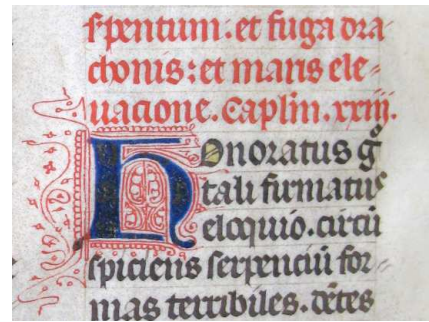 spentum. et fuga dra
chonis: et maris ele-
uacione. Caplm. xxiij.
Honoratus g̃
tali firmatus
eloquio. circũ
spiciens serpenciũ for
mas terribiles. dẽtes